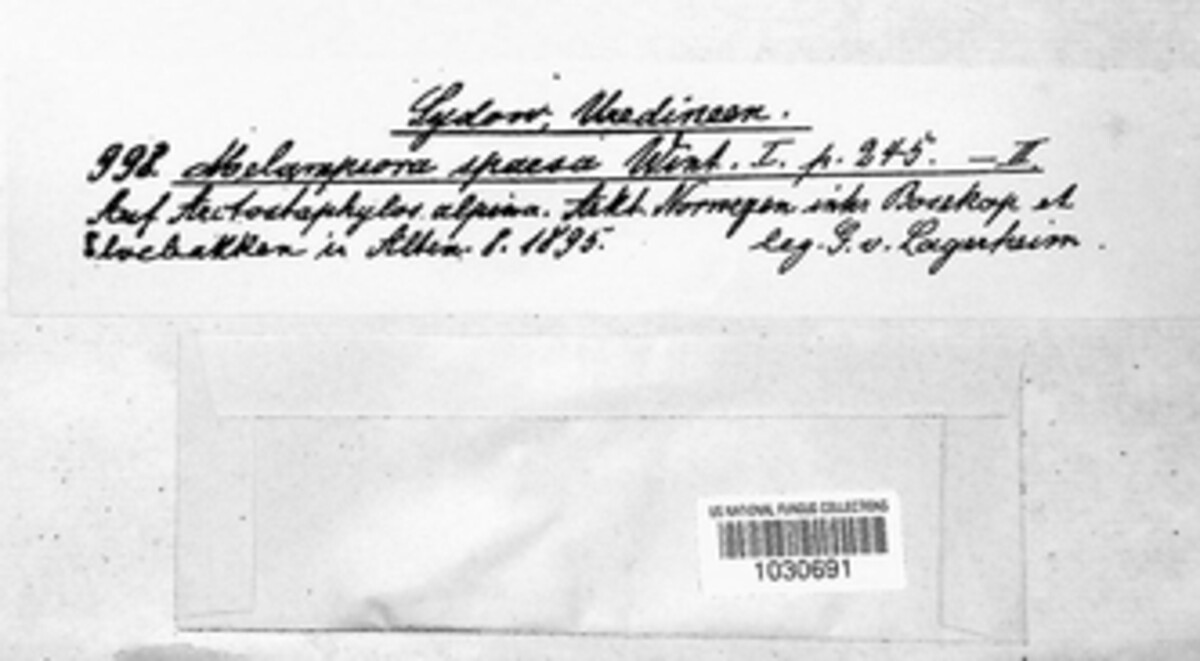 Sydow, Uredineen.
998. Melampsora sparsa Wint. I. p. 245. — II.
Auf Arctostaphylos alpina. Arkt. Norwegen inter Bosekop et
Elvebakken in Alten. 8. 1895. leg. G. v. Lagerheim.
US NATIONAL FUNGUS COLLECTIONS
1030691